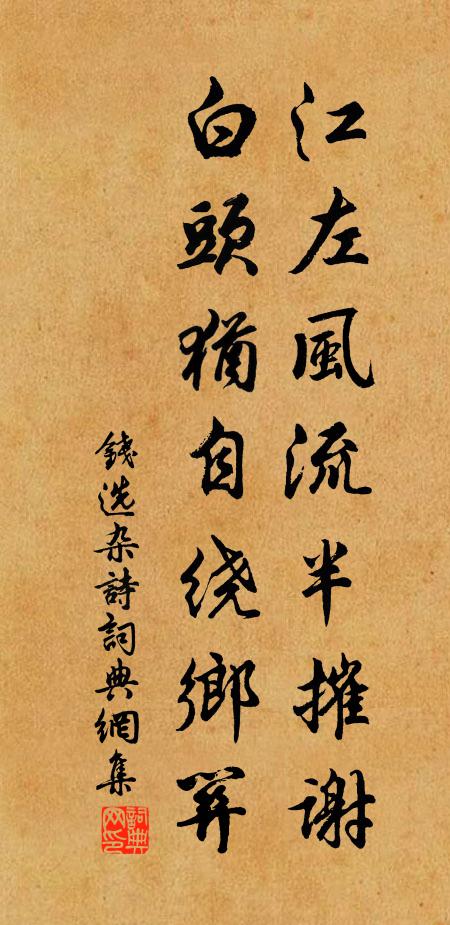 江左風流半摧謝
白頭猶自绕鄉
錢选杂詩詞典網集
詞典网印